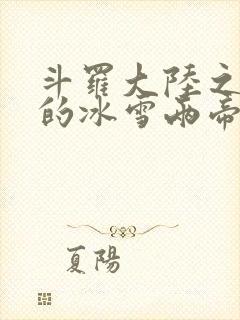 斗羅大陸之
的冰雪兩帝
夏陽